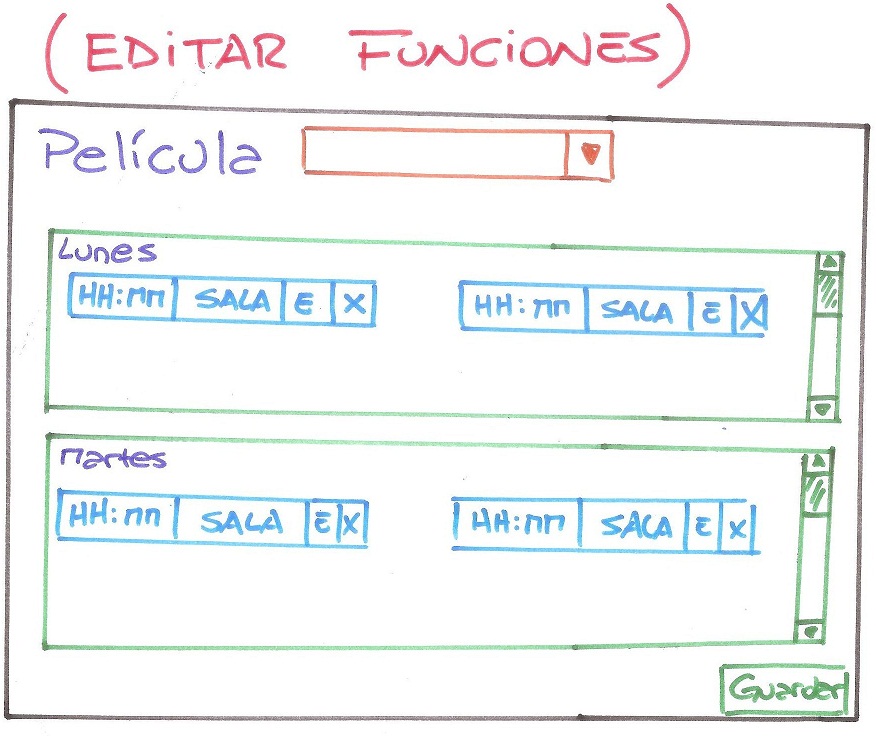 (EDITAR FUNCIONES)
Película
Lunes
HH:MM SALA E X HH:MM SALA E X
Martes
HH:MM SALA E X HH:MM SALA E X
Guardar